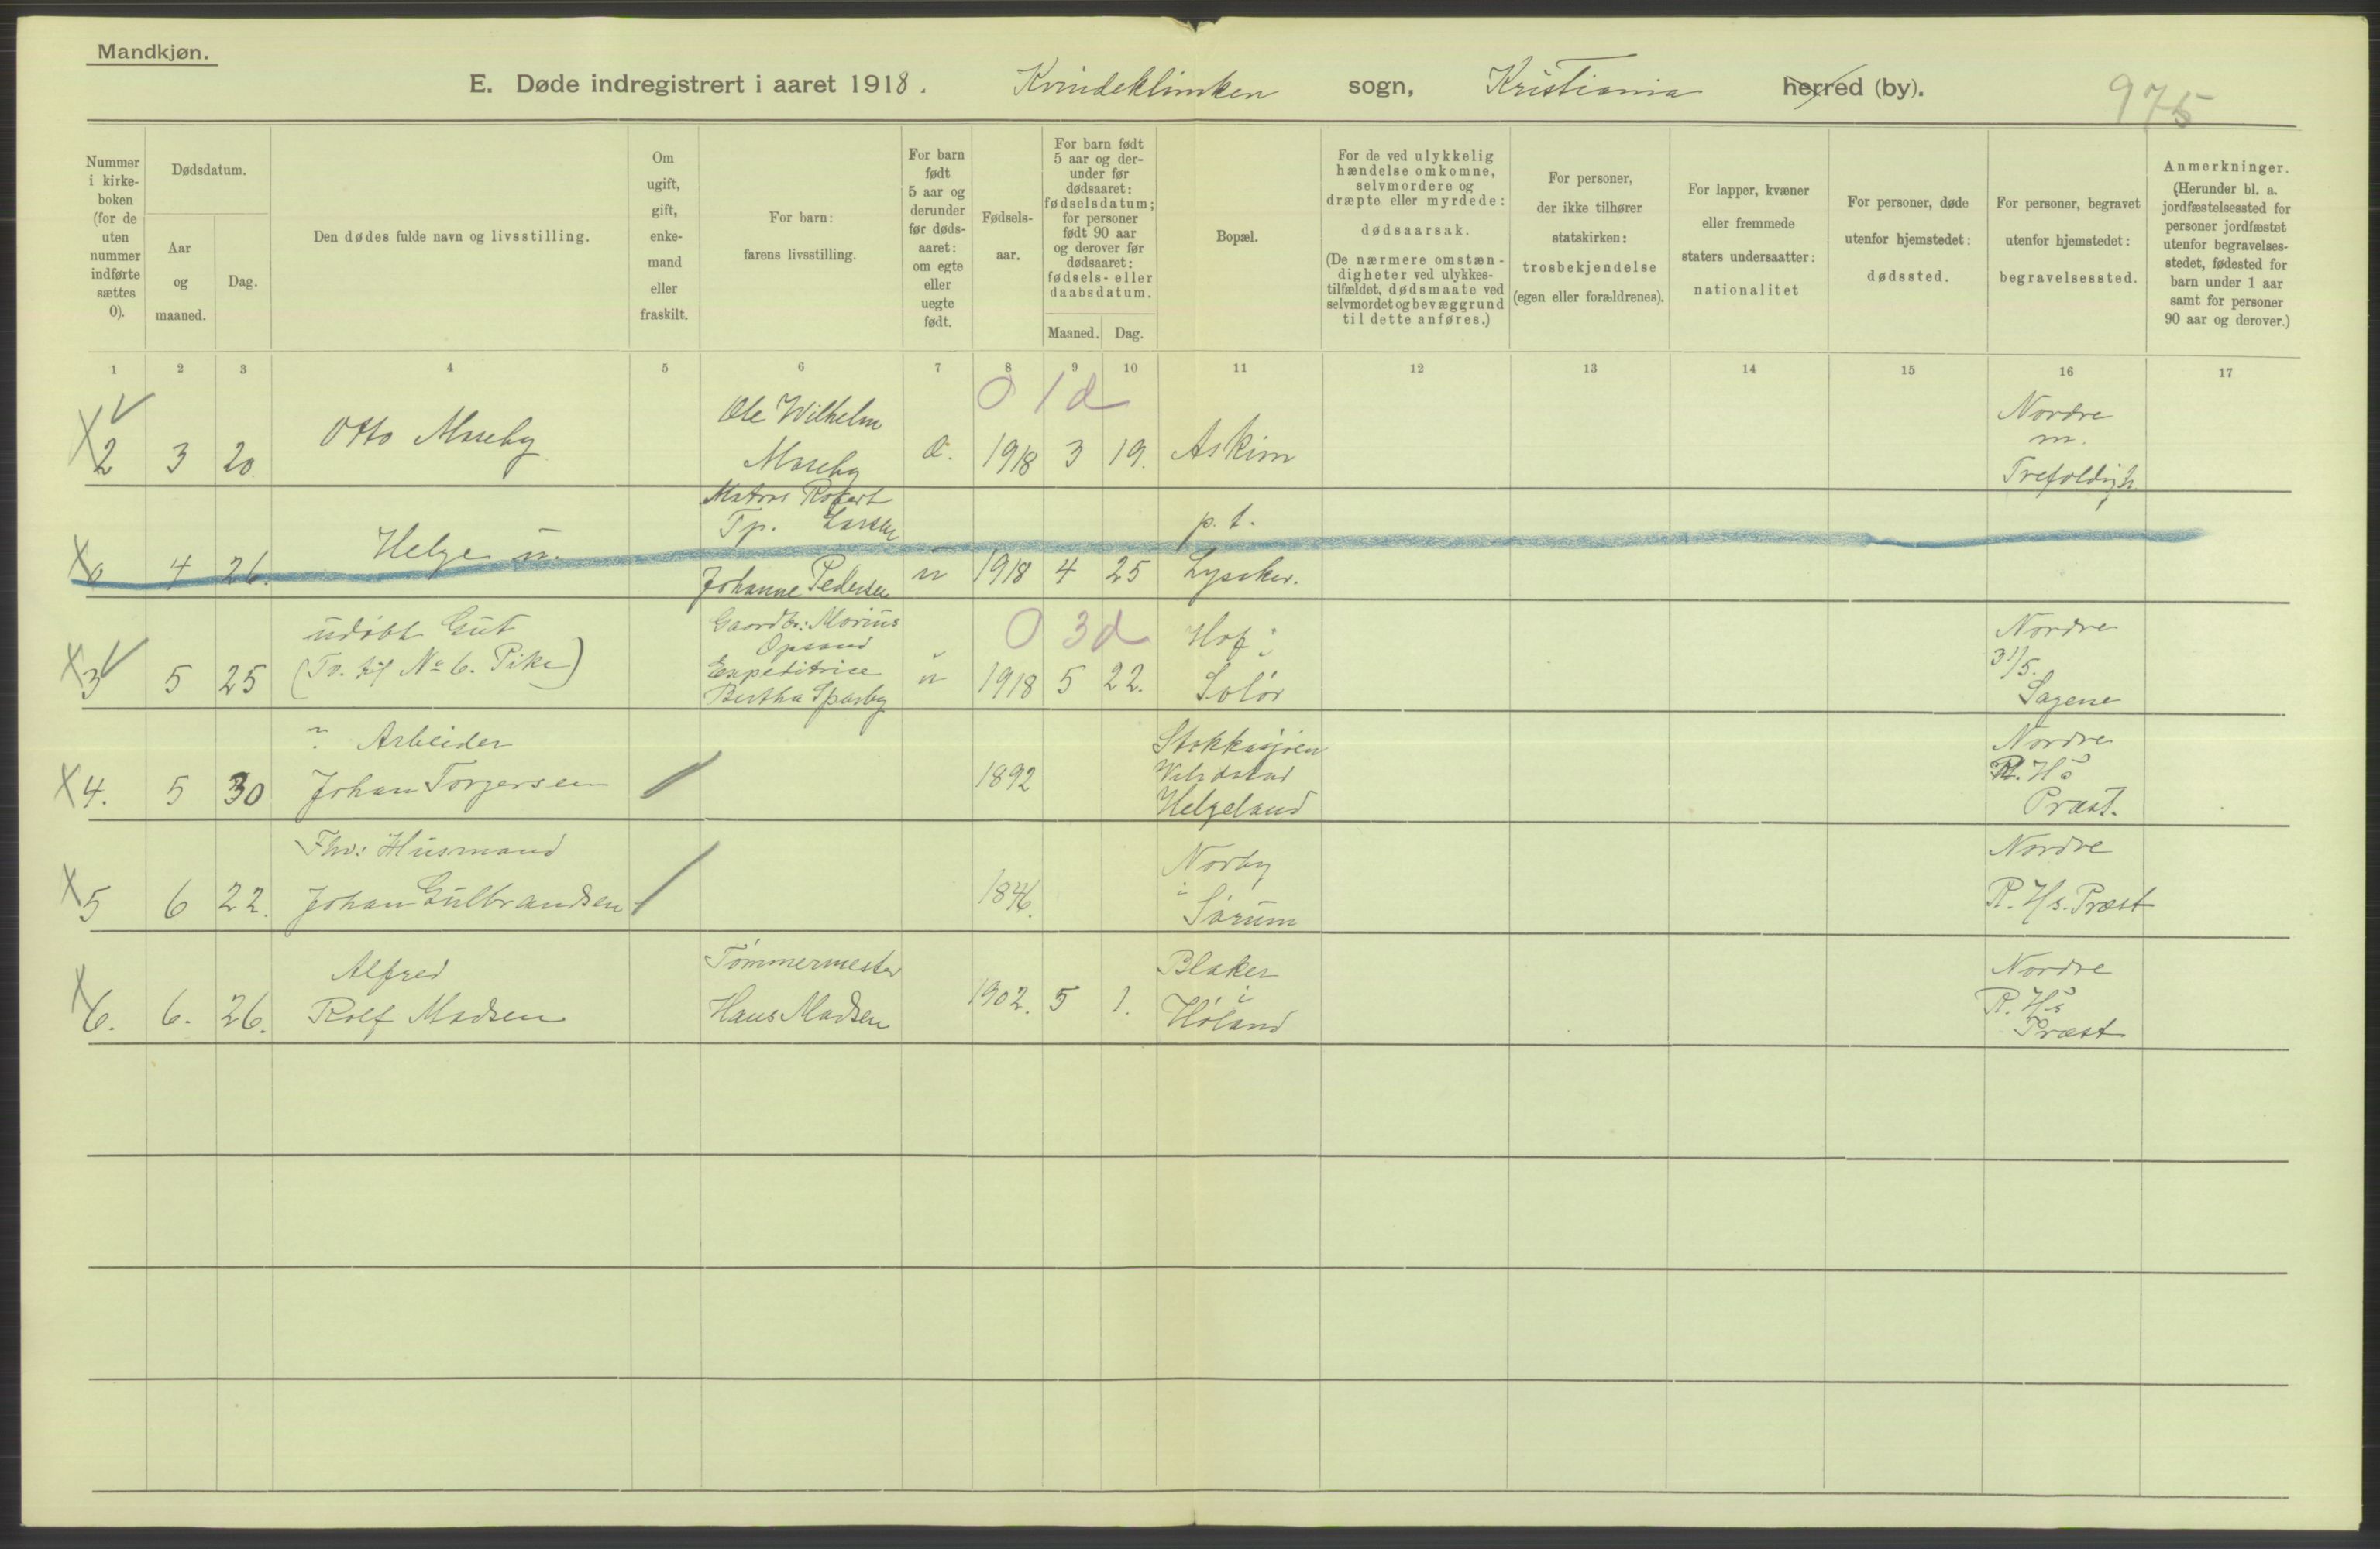 Mandkjøn.
E. Døde indregistrert i aaret 1918. Kvindeklinken sogn, Kristiania herred (by).
975
Nummer i kirkeboken (for de uten nummer indførte sættes 0).
Dødsdatum.
Aar og maaned.
Dag.
Den dødes fulde navn og livsstilling.
Om ugift, gift, enkemand eller fraskilt.
For barn: farens livsstilling.
For barn født 5 aar og derunder før dødsaaret: om egte eller uegte født.
Fødselsaar.
For barn født 5 aar og derunder før dødsaaret: fødselsdatum; for personer født 90 aar og derover før dødsaaret: fødsels- eller daabsdatum.
Maaned. Dag.
Bopæl.
For de ved ulykkelig hændelse omkomne, selvmordere og dræpte eller myrdede: dødsaarsak.
(De nærmere omstændigheter ved ulykkestilfældet, dødsmaate ved selvmordet og bevæggrund til dette anføres.)
For personer, der ikke tilhører statskirken: trosbekjendelse (egen eller forældrenes).
For lapper, kvæner eller fremmede staters undersaatter: nationalitet
For personer, døde utenfor hjemstedet: dødssted.
For personer, begravet utenfor hjemstedet: begravelsessted.
Anmerkninger.
(Herunder bl. a. jordfæstelsessted for personer jordfæstet utenfor begravelsesstedet, fødested for barn under 1 aar samt for personer 90 aar og derover.)
1 2 3 4 5 6 7 8 9 10 11 12 13 14 15 16 17
0 1 d
Ole Wilhelm
Nordre
m.
2 3 20 Otto Maseby Maseby 1918 3 19. Askim
Trefoldigh.
Robert
Tp. Larsen
p. t.
0 4 26. Helge u.
Johanne Pedersen u 1918 4 25 Lysaker.
udøbt Gut
Gaardbr: Marius
Opsand
0 3 d
Hof i
Nordre
31/5.
3 5 25 (Tv. til No 6. Pike)
Expeditrice
Bertha Sparby u 1918 5 22. Solør
Sagene
Arbeider
Nordre
4. 5 30 Johan Torgersen 1892
Helgeland
R. Hs
Præst.
Fhv: Husmand
Norby
i
Nordre
5 6 22. Johan Gulbrandsen 1846. Sørum
R. Hs. Præst
Alfred
Tømmermester
Blaker
i
Nordre
6. 6. 26. Rolf Madsen Hans Madsen 1902. 5 1. Høland
R. Hs
Præst